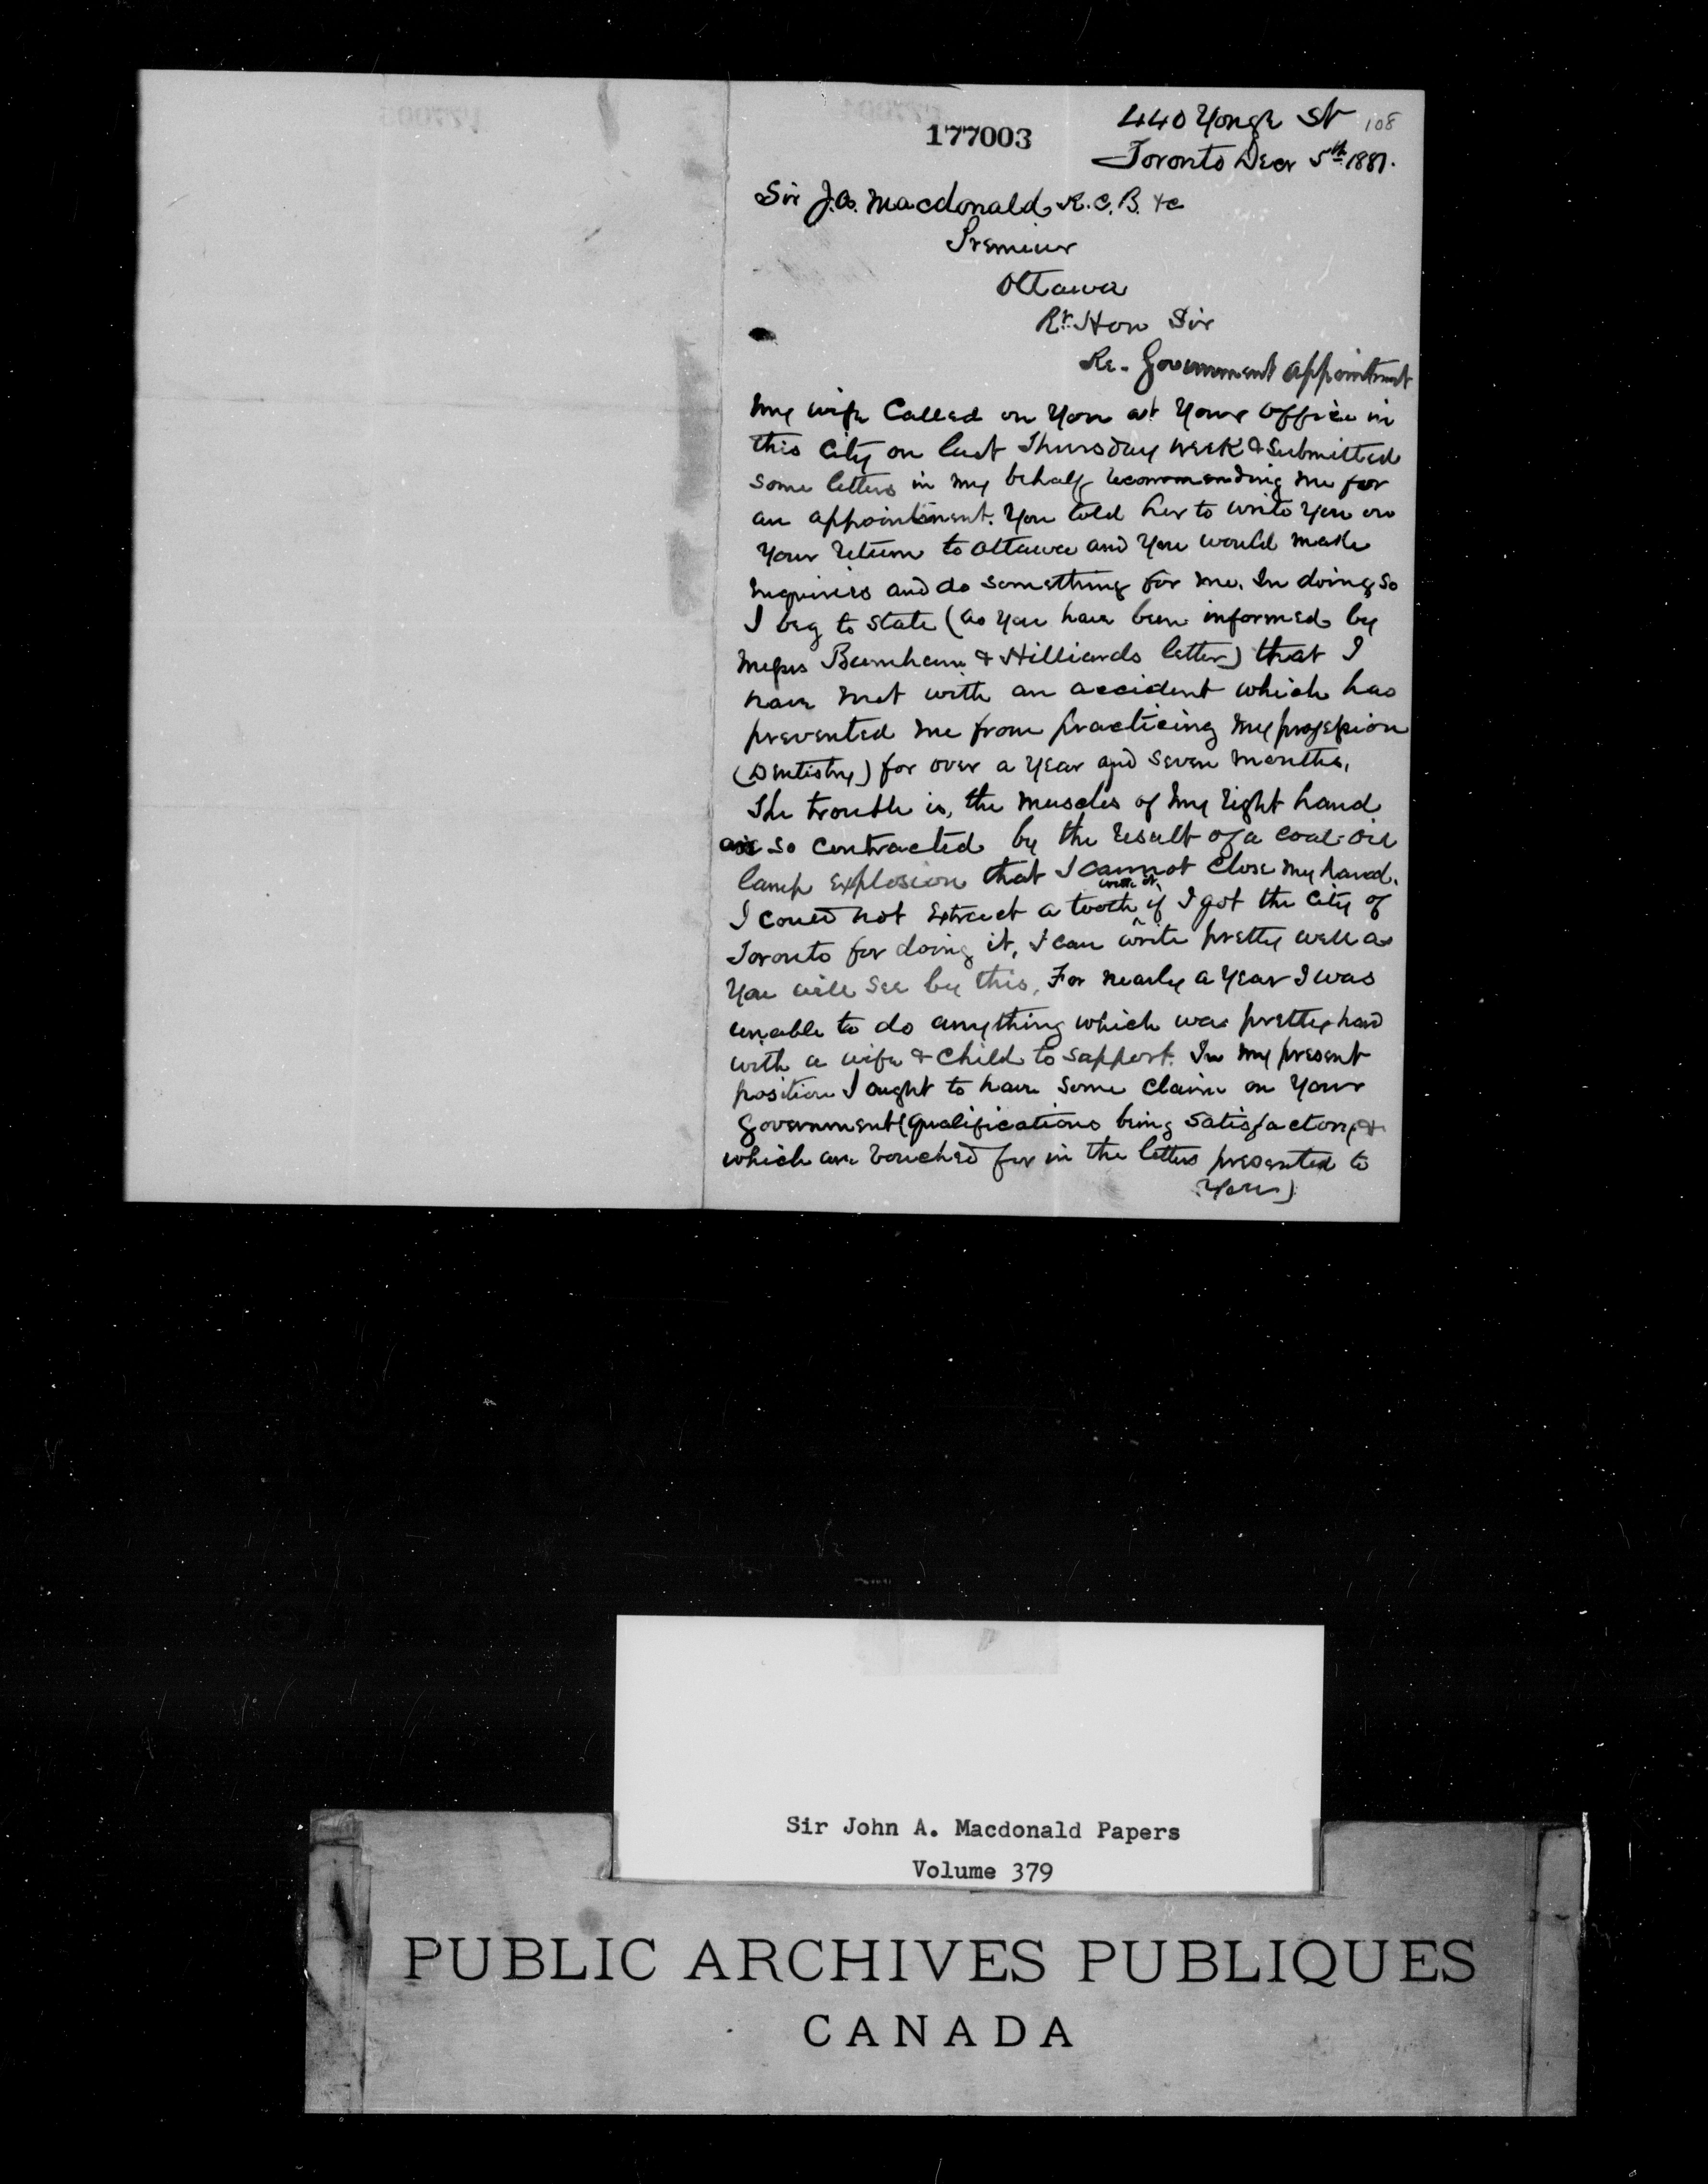 177003
108
440 Yonge St
Toronto Decr 5th 1881.
Sir J. A. Macdonald, K. C. B. &c
Premier
Ottawa
Rt. Hon Sir
Re- Government appointment
My wife Called on You at Your office in
this City on last Thursday week & Submitted
some letters in my behalf recommending me for
an appointment. You told her to write You on
Your return to Ottawa and You would make
inquiries and do something for me. In doing so
I beg to state (as You have been informed by
Messrs Burnham & Hilliards letter) that I
have met with an accident which has
prevented me from practicing my profession
(Dentistry) for over a Year and Seven months,
The trouble is, the muscles of my right hand
are so contracted by the result of a coal-oil
lamp explosion that I cannot close my hand.
I could not extract a tooth with it, if I got the City of
Toronto for doing it, I can write pretty well as
You will see by this, For nearly a Year I was
unable to do anything which was pretty hard
with a wife & child to support. In my present
position I ought to have some claim on Your
Government (qualifications being satisfactory &
which are vouched for in the letters presented to
You)
Sir John A. Macdonald Papers
Volume 379
PUBLIC ARCHIVES PUBLIQUES
CANADA